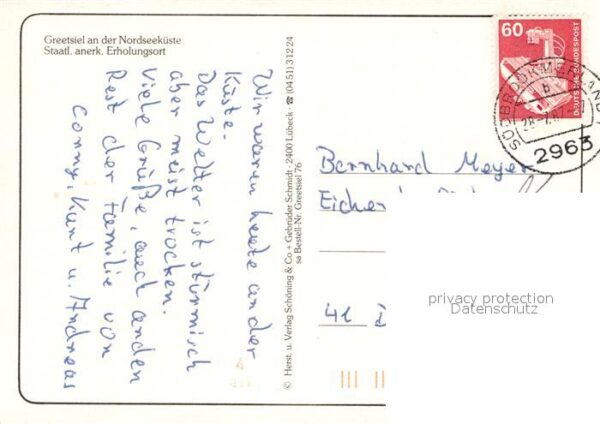 Greetsiel an der Nordseeküste
Staatl. anerk. Erholungsort
Wir waren heute an der
Küste.
Das Wetter ist stürmisch
aber meist trocken.
Viele Grüße, auch an den
Rest der Familie von
Conny, Kurt u. Andreas
© Herst. u. Verlag Schöning & Co + Gebrüder Schmidt · 2400 Lübeck · ☎ (04 51) 3 12 24
sa Bestell-Nr. Greetsiel 76
60
DEUTSCHE BUNDESPOST
SÜDBROOKMERLAND
b
2963
Bernhard Meyer
41
privacy protection
Datenschutz